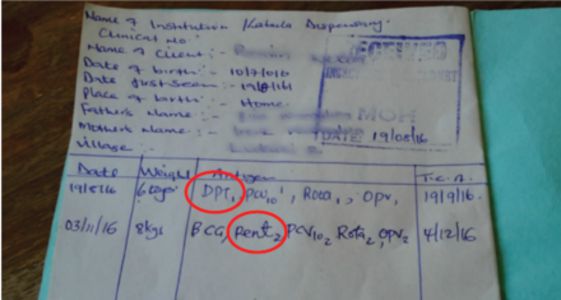 Name of Institution / Katula Dispensary.
Clinical No:
Name of Client:-
Date of birth:- 10/7/016
Date first seen:- 19/8/161
Place of birth:- Home.
Father's Name:-
Mothers Name:-
Village:-
RECEIVED
MOH
DATE: 19/08/16
Date Weight Antigen T.C.A.
19/8/16 6kgs DPT1, PCV10 1, Rota1, OPV1 19/9/16.
03/11/16 8kgs BCG, Pent2 PCV10 2 Rota2, OPV2 4/12/16